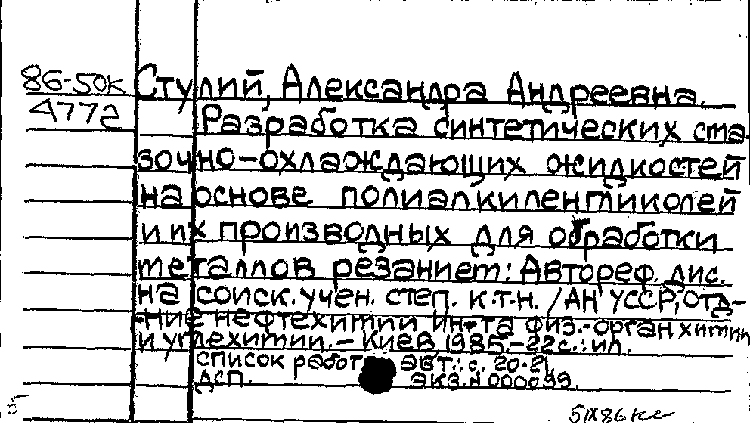 86-50к Стулий, Александра Андреевна.
4772 Разработка синтетических сма-
зочно-охлаждающих жидкостей
на основе полиалкиленгликолей
и их производных для обработки
металлов резанием: Автореф. дис.
на соиск. учен. степ. к.т.н. /АН УССР, Отд-
ние нефтехимии Ин-та физ.-орган химии
и углехимии. - Киев 1985. - 22с.: ил.
Список работ авт.: с. 20-21
ДСП. Экз. N 000099.
5 IX 86